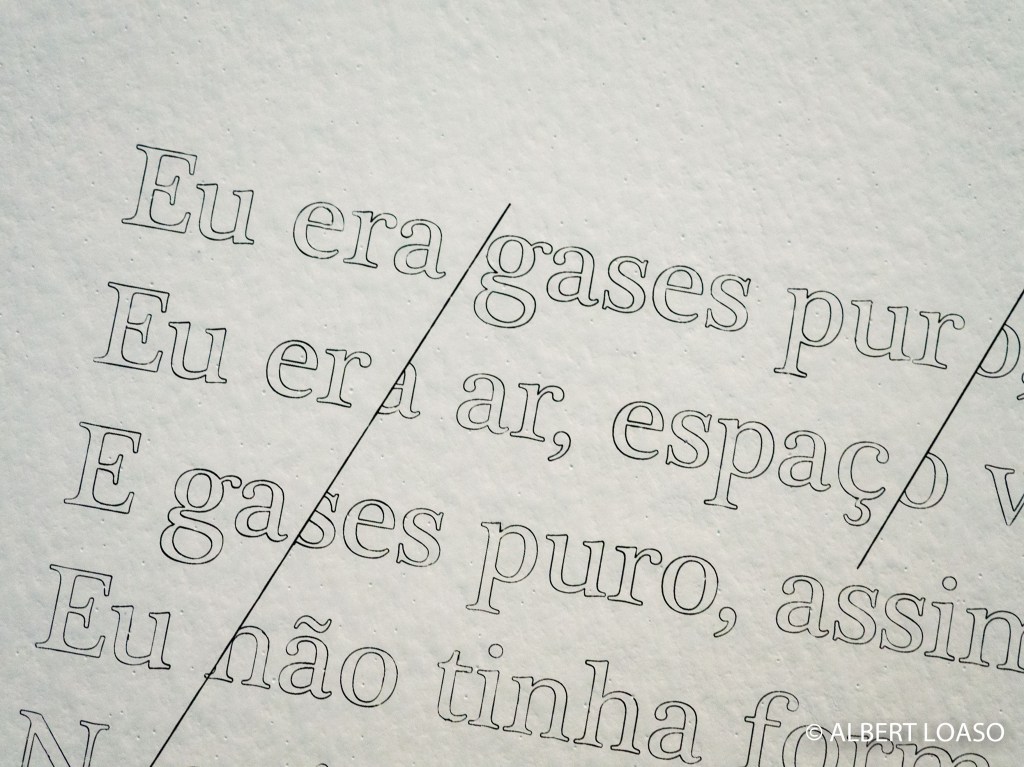 Eu era gases puro,
Eu era ar, espaço v
E gases puro, assim
Eu não tinha form
N
© ALBERT LOASO